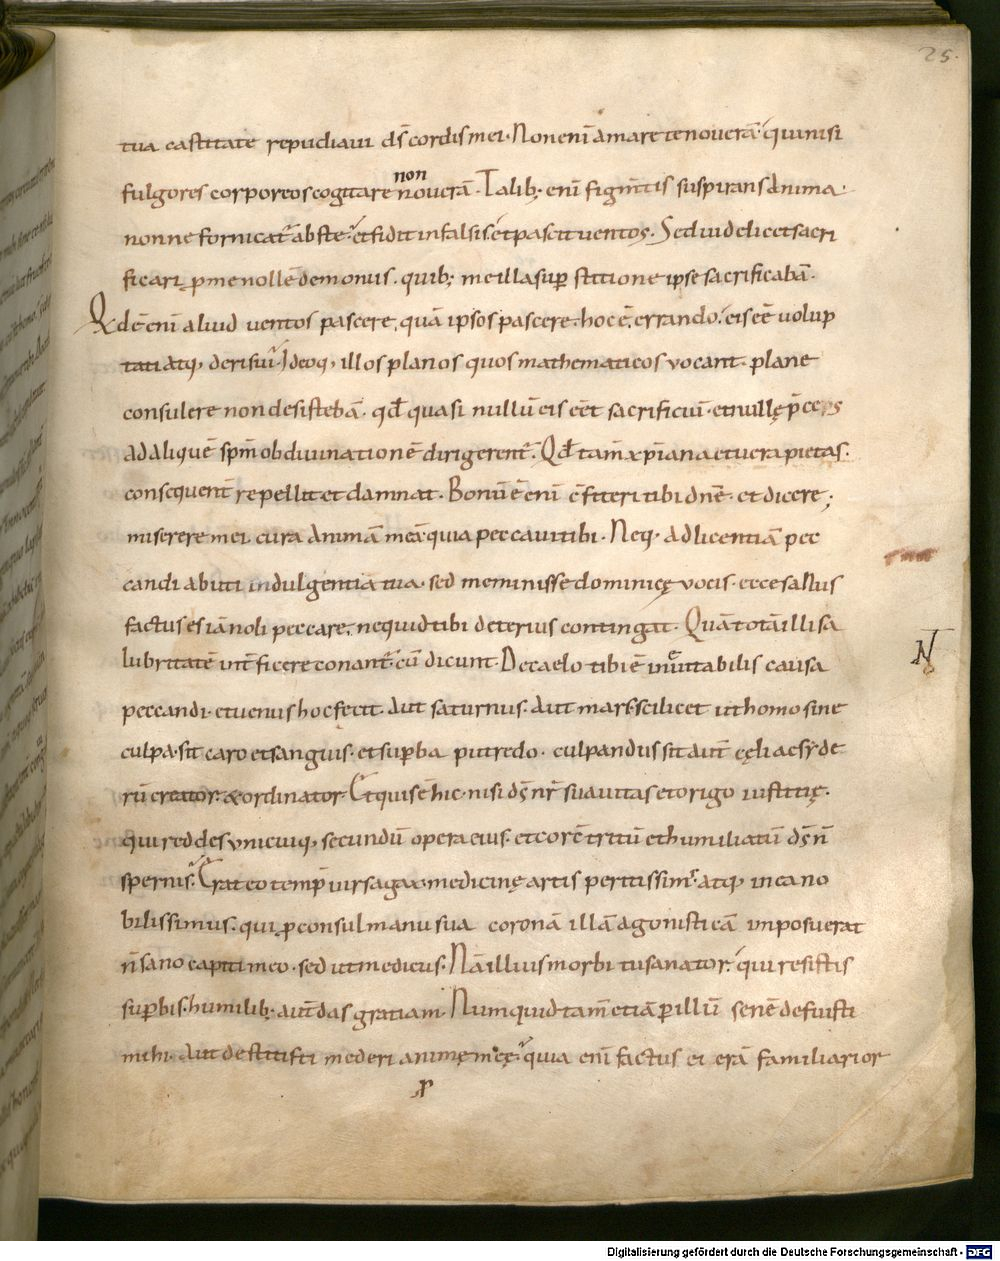 25.
tua castitate repudiaui ds̄ cordis mei. Non enī amare te noverā. qui nisi
fulgores corporeos cogitare non noverā. Talib; enī figm̄tis suspirans anima.
nonne fornicat̄ abs te. et fidit in falsis. et pascit uentos. Sed uidelicet sacri
ficari p̱ me nollē demonus. quib; me illa sup̱stitione ipse sacrificabā.
Qd ē enī aliud uentos pascere, quā ipsos pascere. hoc ē, errando. eis eē uolup
tati atq; derisui. Ideoq; illos planos quos mathematicos vocant. plane
consulere non desistebā. qđ quasi nullū eis eēt sacrificiū. et nullę p̄ces
ad aliquē sp̄m ob diuinationē dirigerent̄. Qđ tam̄ xp̄iana et uera pietas.
consequent̄ repellit et damnat. Bonū ē enī c̄fiteri tibi dn̄e. et dicere;
miserere mei. cura animā meā quia peccaui tibi. Neq; ad licentiā pec
candi abuti indulgentia tua. sed meminisse dominicę vocis. ecce sanus
factus es iā noli peccare. ne quid tibi deterius contingat. Quā totā illi sa
lubritatē int̄ficere conant̄. cū dicunt. De caelo tibi ē ineuitabilis causa
peccandi. et uenus hoc fecit. aut saturnus. aut mars. scilicet ut homo sine
culpa sit caro et sanguis. et sup̱ba putredo. culpandus sit aut̄ cęli ac syde
rū creator. & ordinator. Et quis ē hic. nisi ds̄ nr̄ suauitas et origo iustitię.
qui reddes vnicuiq; secundū opera eius. et cor c̄tritū et humiliatū ds̄ n̄
spernis. Erat eo temp̄ uir sagax. medicinę artis peritissim'. atq; in ea no
bilissimus. qui p̱consul manu sua coronā illā agonisticā inposuerat
n̄ sano capiti meo. sed ut medicus. Nā illius morbi tu sanator. qui resistis
sup̱bis. humilib; aut̄ das gratiam. Numquid tam̄ etiā p̱ illū senē defuisti
mihi. aut destitisti mederi animę meę. quia enī factus ei erā familiarior